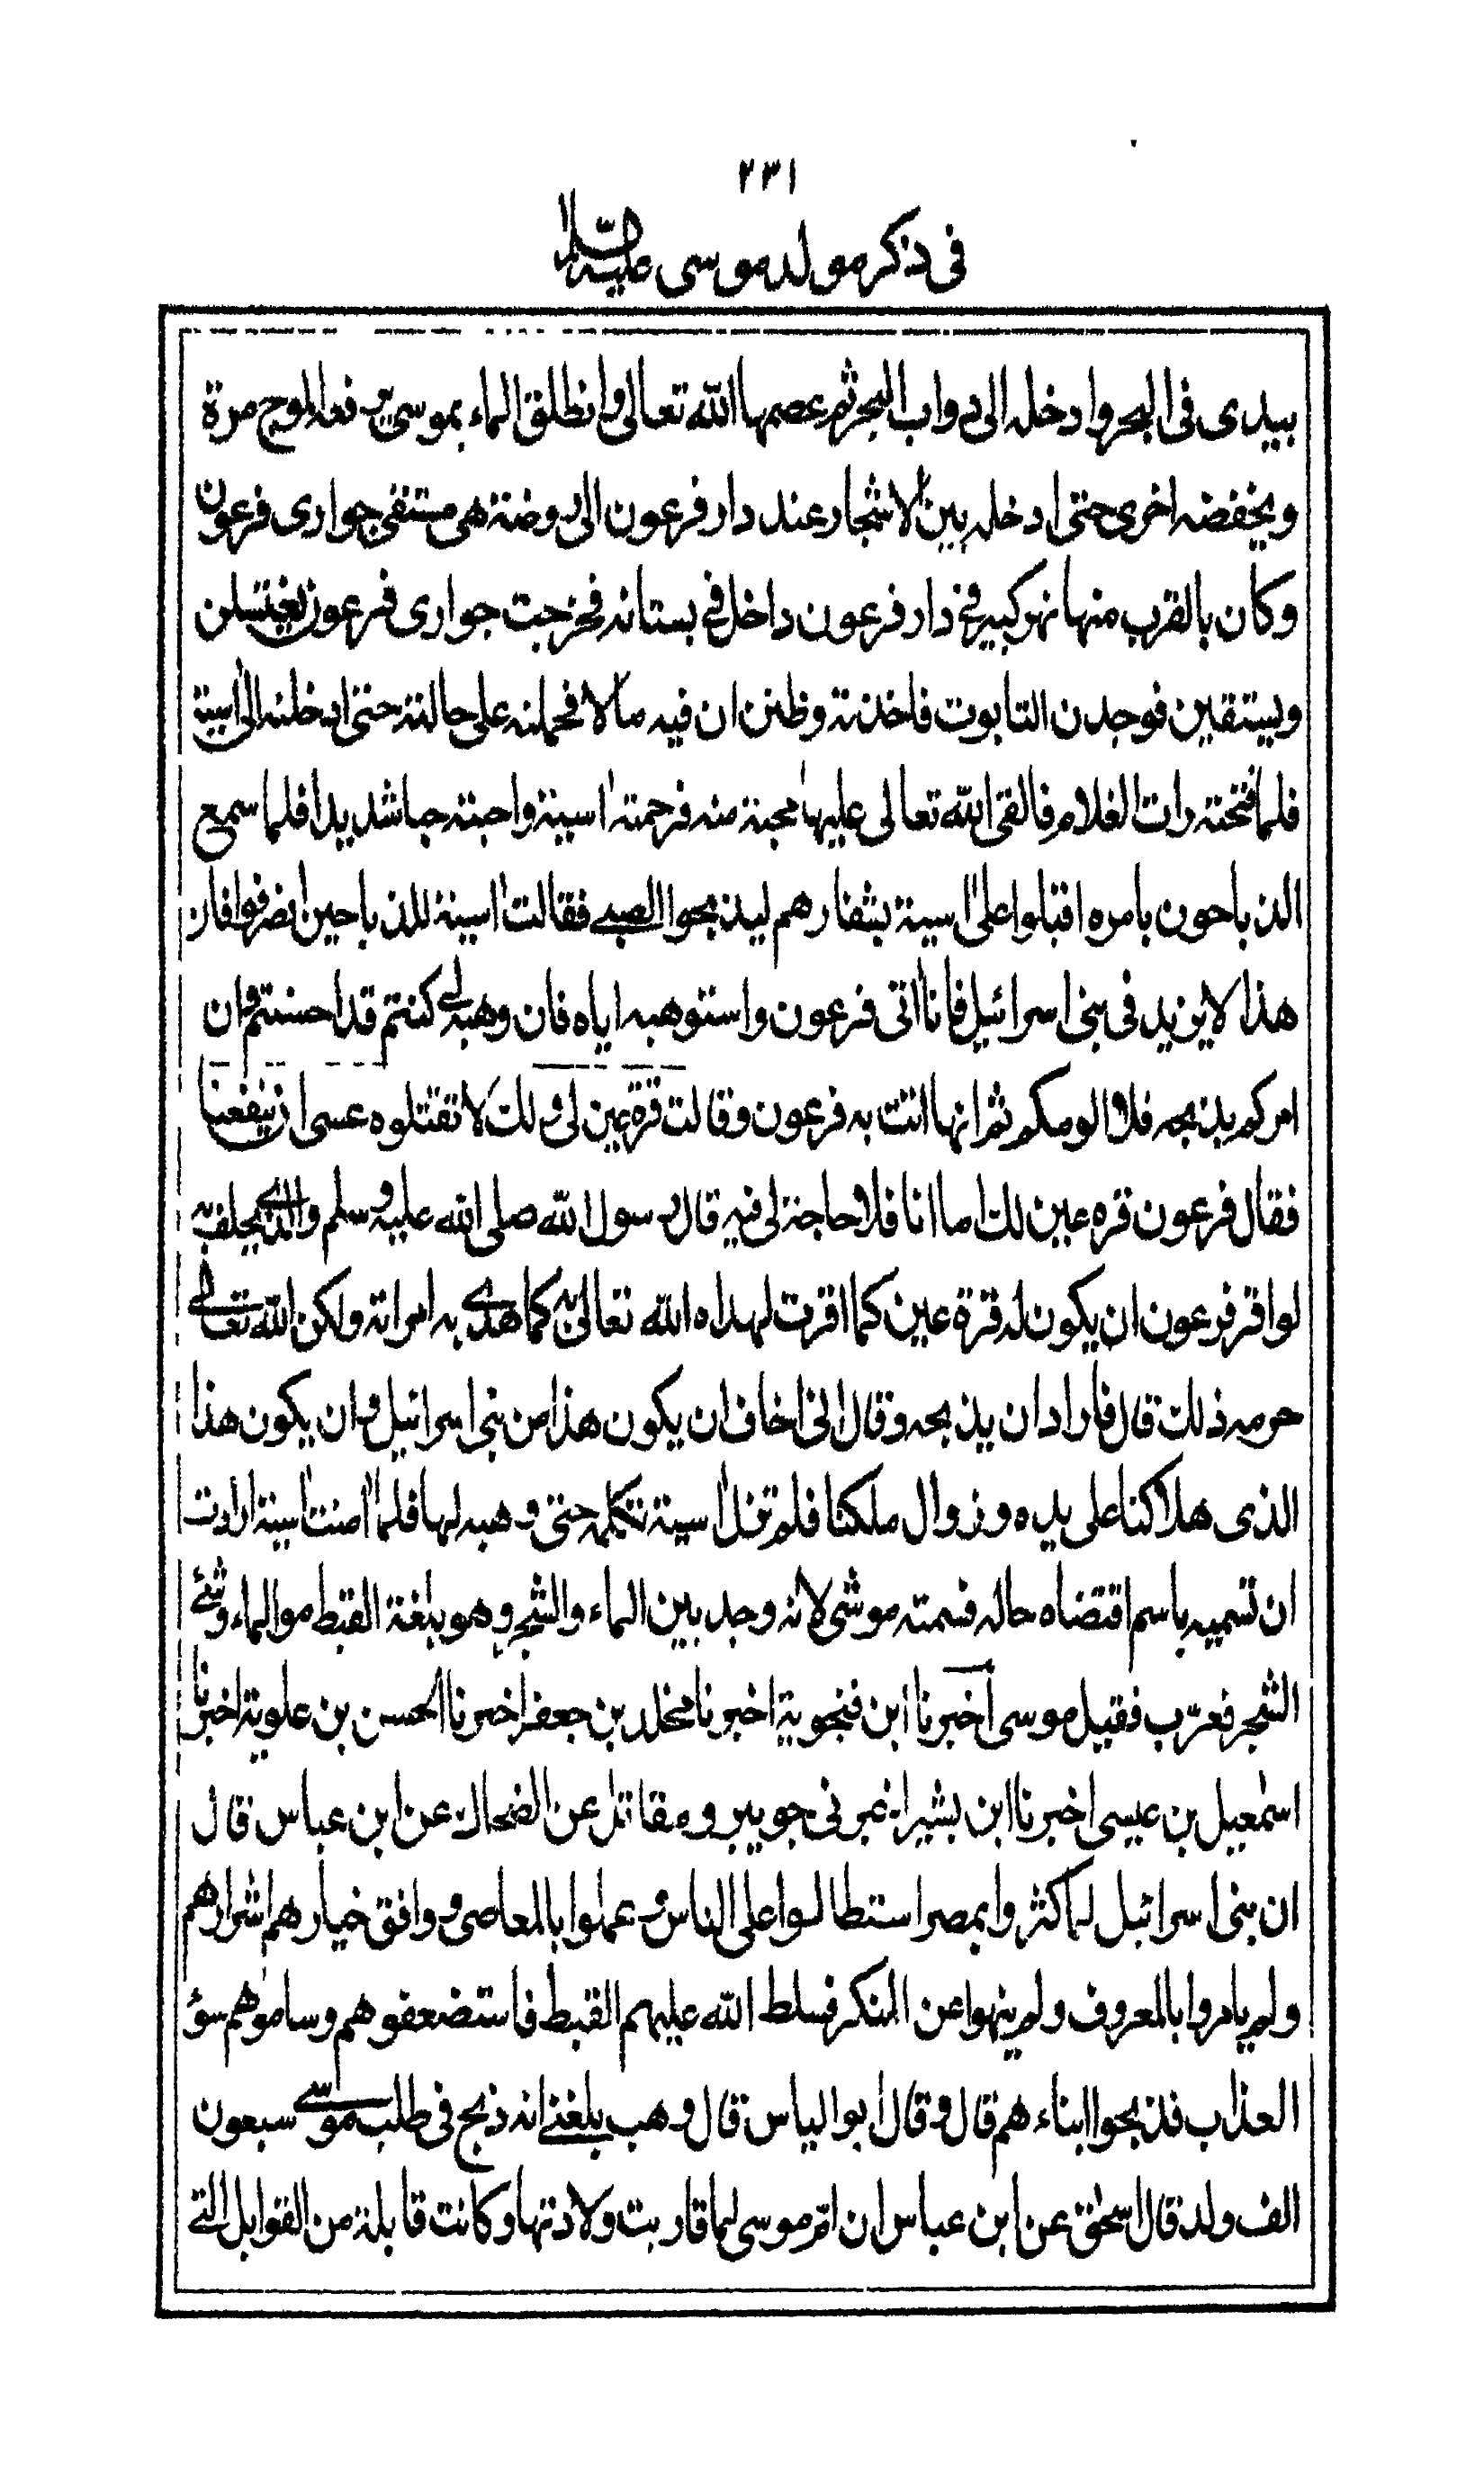 ٢٣١
فى ذكر مولد موسى عليه السّلام
بيدى فى البحر وادخله الى دواب البحر ثم عصمها الله تعالى وانطلق الماء بموسى يرفعه الموج مرة
ويخفضه اخرى حتى ادخله بين الاشجار عند دار فرعون الى روضة هى مستقى جوارى فرعون
وكان بالقرب منها نهر كبير فى دار فرعون داخل فى بستانه فخرجت جوارى فرعون يغتسلن
ويستقين فوجدن التابوت فاخذنه وظنن ان فيه مالا فحملنه على حالته حتى ادخلنه الى اسية
فلما فتحته رات الغلام فالقى الله تعالى عليها محبة منه فرحمته اسية واحبته حبا شديدا فلما سمع
الذباحون بامره اقبلوا على اسية بشفارهم ليذبحوا الصبى فقالت اسية للذباحين انصرفوا فان
هذا لا يزيد فى بنى اسرائيل فانا اتى فرعون واستوهبه اياه فان وهبه لى كنتم قد احسنتم وان
امركم بذبحه فلا الومكم ثم انها اتت به فرعون وقالت قرة عين لى ولك لا تقتلوه عسى ان ينفعنا
فقال فرعون قره عين لك اما انا فلا حاجة لى فيه قال رسول الله صلى الله عليه وسلم والذى يحلف به
لو اقر فرعون ان يكون له قرة عين كما اقرت لهداه الله تعالى به كما هدى به امراته ولكن الله تعالى
حرمه ذلك قال فاراد ان يذبحه وقال انى اخاف ان يكون هذا من بنى اسرائيل وان يكون هذا
الذى هلاكنا على يده وزوال ملكنا فلم تزل اسية تكلمه حتى وهبه لها فلما امنت اسية ارادت
ان تسميه باسم اقتضاه حاله فسمته موشى لانه وجد بين الماء والشجر وهو بلغة القبط مو الماء وشئ
الشجر فعرّب فقيل موسى اخبرنا ابن فنجوية اخبرنا مخلد بن جعفر اخبرنا الحسن بن علوية اخبرنا
اسمعيل بن عيسى اخبرنا ابن بشير اخبرنى جويبر ومقاتل عن الضحاك عن ابن عباس قال
ان بنى اسرائيل لما كثروا بمصر استطالوا على الناس وعملوا بالمعاصى ووافق خيارهم اشرارهم
ولم يامروا بالمعروف ولم ينهوا عن المنكر فسلط الله عليهم القبط فاستضعفوهم وساموهم سؤ
العذاب فذبحوا ابناءهم قال وقال ابو الياس قال وهب بلغنى انه ذبح فى طلب موسى سبعون
الف ولد قال اسحق عن ابن عباس ان امّ موسى لما قاربت ولادتها وكانت قابلة من القوابل التى